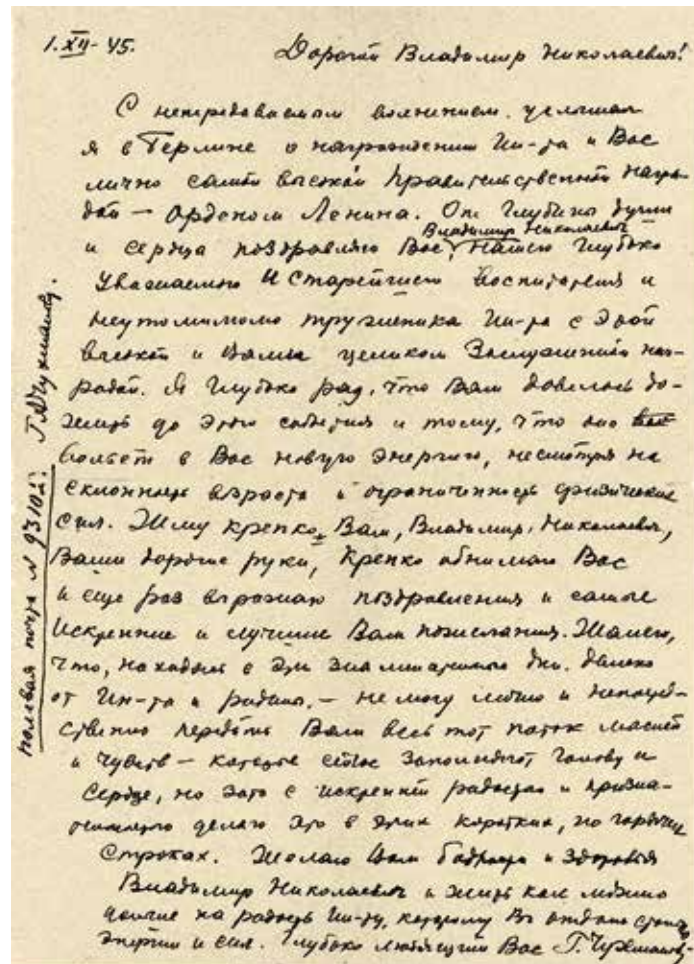 1.XII-45.
Дорогой Владимир Николаевич!
С непередаваемым волнением услышал
я в Берлине о награждении Ин-та и Вас
лично самой высокой правительственной награ-
дой — орденом Ленина. От глубины души
Владимир Николаевич
и сердца поздравляю Вас, нашего глубоко
уважаемого и старейшего воспитателя и
неутомимого труженика Ин-та с этой
высокой и Вами целиком заслуженной наг-
радой. Я глубоко рад, что Вам довелось до-
жить до этого события и тому, что оно
вольет в Вас новую энергию, несмотря на
склонность возраста и ограниченность физических
сил. Жму крепко Вам, Владимир Николаевич,
Ваши дорогие руки, крепко обнимаю Вас
и еще раз выражаю поздравления и самые
искренние и лучшие Вам пожелания. Жалею,
что, находясь в эти знаменательные дни далеко
от Ин-та и родины, — не могу лично и непосред-
ственно передать Вам весь тот поток мыслей
и чувств — которые сейчас заполняют голову и
сердце, но зато с искренней радостью и призна-
тельностью делаю это в этих коротких, но горячих
строках. Желаю Вам бодрости и здоровья
Владимир Николаевич и жить как можно
дольше на радость Ин-ту, которому Вы отдали столько
энергии и сил. Глубоко любящий Вас Г. Чухманов
полевая почта № 93102 Г. Чухманову.